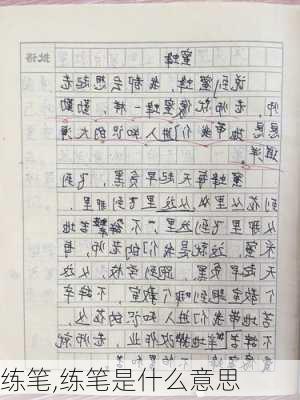 批语
蜜蜂
说到蜜蜂,我都会想起老
师,老师就像蜜蜂一样,勤勤
恳恳地带我们进入知识的大
蜜蜂每天起早贪黑,飞
到花丛里从这里飞到那里,
从那里飞到这里,不辞辛苦地
采蜜,这就是我们的老师,每
天起早贪黑,跑到学校,从这
个教室跑到那个教室,不辞辛
苦地带我们进入知识的
辛苦地批改作业,老师就
练笔,练笔是什么意思